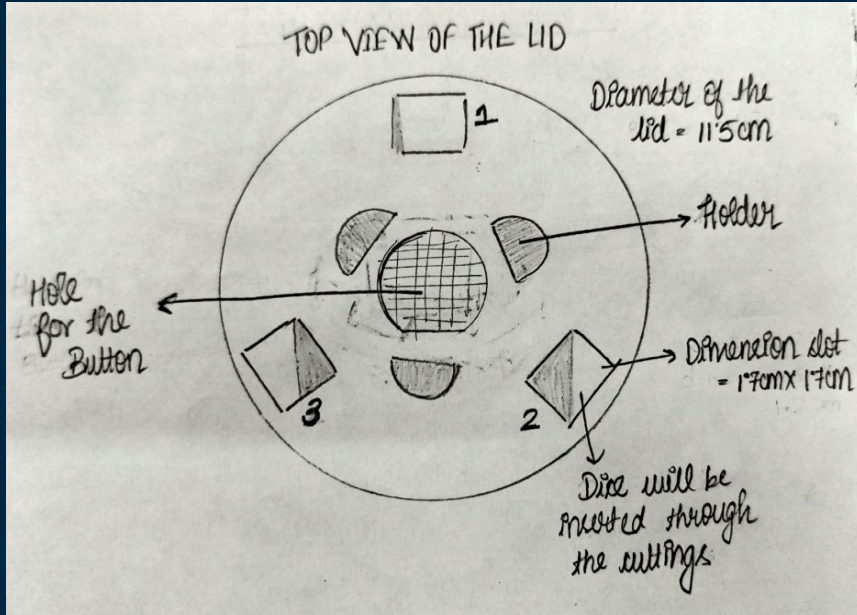 TOP VIEW OF THE LID
1
Diameter of the
lid = 11.5cm
Holder
Hole
for the
Button
Dimension slot
= 1.7cm x 1.7cm
3
2
Dice will be
inserted through
the cuttings